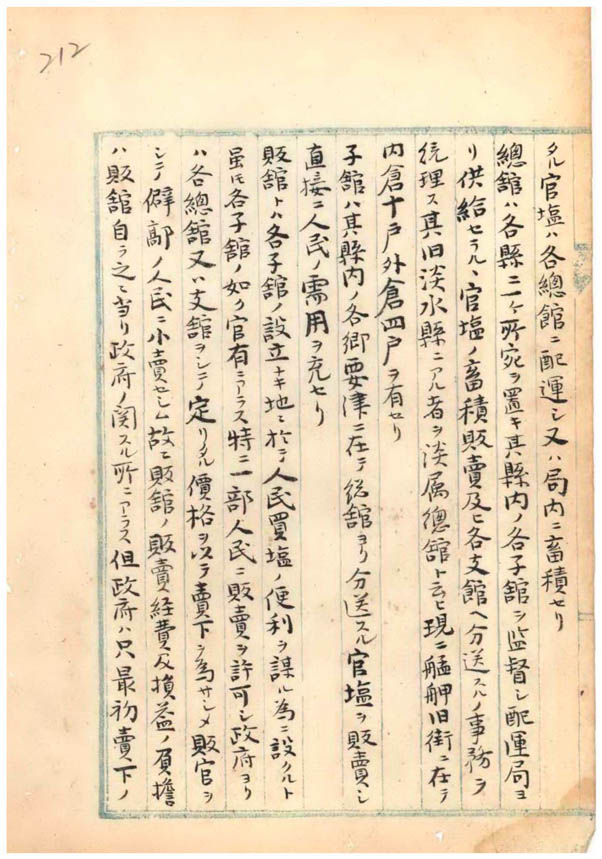 212
タル官塩ハ各總館ニ配運シ又ハ局内ニ畜積セリ
總舘ハ各縣ニ一ヶ所宛ヲ置キ其縣内ノ各子舘ヲ監督シ配運局ヨ
リ供給セラルヽ官塩ノ畜積販賣及ヒ各支館ヘ分送スルノ事務ヲ
統理ス其旧淡水縣ニアル者ヲ淡属總舘ト云ヒ現ニ艋舺旧街ニ在テ
内倉十戸外倉四戸ヲ有セリ
子舘ハ其縣内ノ各鄉要津ニ在テ総舘ヨリ分送スル官塩ヲ販賣シ
直接ニ人民ノ需用ヲ充セリ
販舘トハ各子舘ノ設立ナキ地ニ於テ人民買塩ノ便利ヲ謀ル為ニ設クルト
虽𪜈各子舘ノ如ク官有ニアラス特ニ一部人民ニ販賣ヲ許可シ政府ヨリ
ハ各總舘又ハ支舘ヲシテ定リタル價格ヲ以テ賣下ヲ為サシメ販官ヲ
シテ僻鄙ノ人民ニ小賣セシム故ニ販舘ノ販賣経費及損益ノ負擔
ハ販舘自ラ之ニ当リ政府ノ関スル所ニアラス但政府ハ只最初賣下ノ